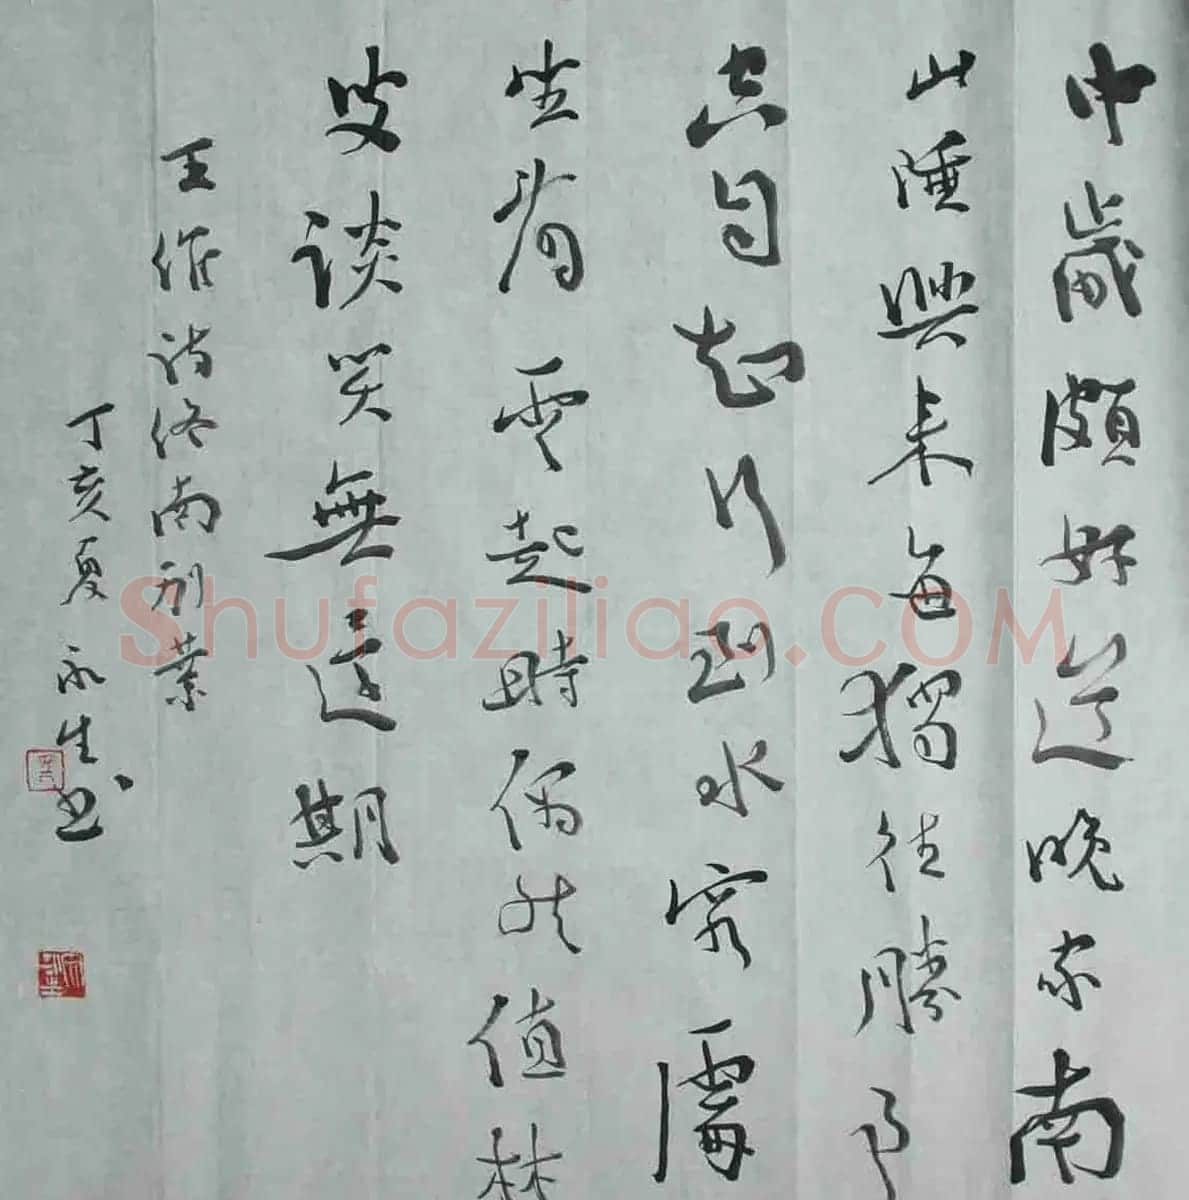 中歲頗好道晚家南
山陲興来每獨往勝事
空自知行到水窮處
坐看雲起時偶然值林
叟談笑無還期
王維詩终南别業
丁亥夏 永生书
Shufaziliao.COM